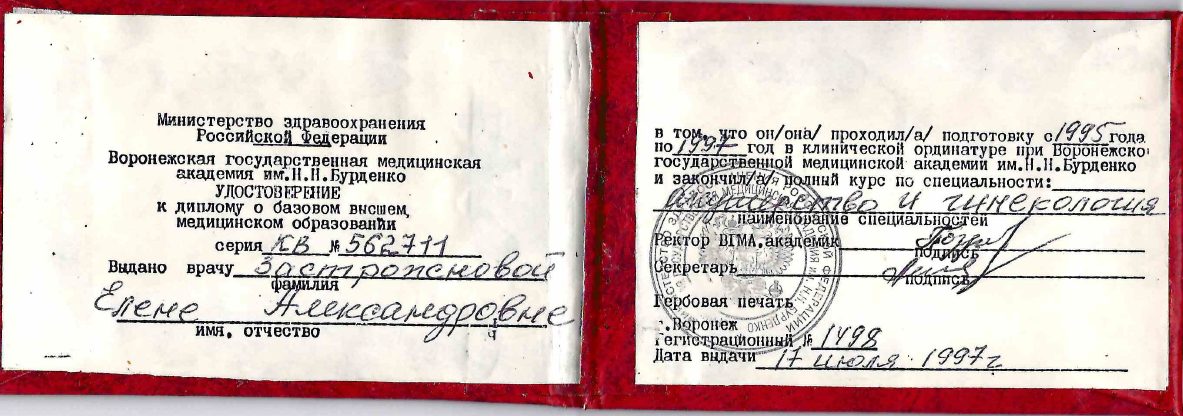 Министерство здравоохранения
Российской Федерации
Воронежская государственная медицинская
академия им.Н.Н.Бурденко
УДОСТОВЕРЕНИЕ
к диплому о базовом высшем
медицинском образовании
серия КВ № 562711
Выдано врачу Застрожновой
фамилия
Елене Александровне
имя, отчество
в том, что он/она/ проходил/а/ подготовку с 1995 года
по 1997 год в клинической ординатуре при Воронежско
государственной медицинской академии им.Н.Н.Бурденко
и закончил/а/ полный курс по специальности:
акушерство и гинекология
наименование специальностей
Ректор ВГМА, академик
подпись
Секретарь
подпись
Гербовая печать
г.Воронеж
Регистрационный № 1498
Дата выдачи 17 июля 1997г